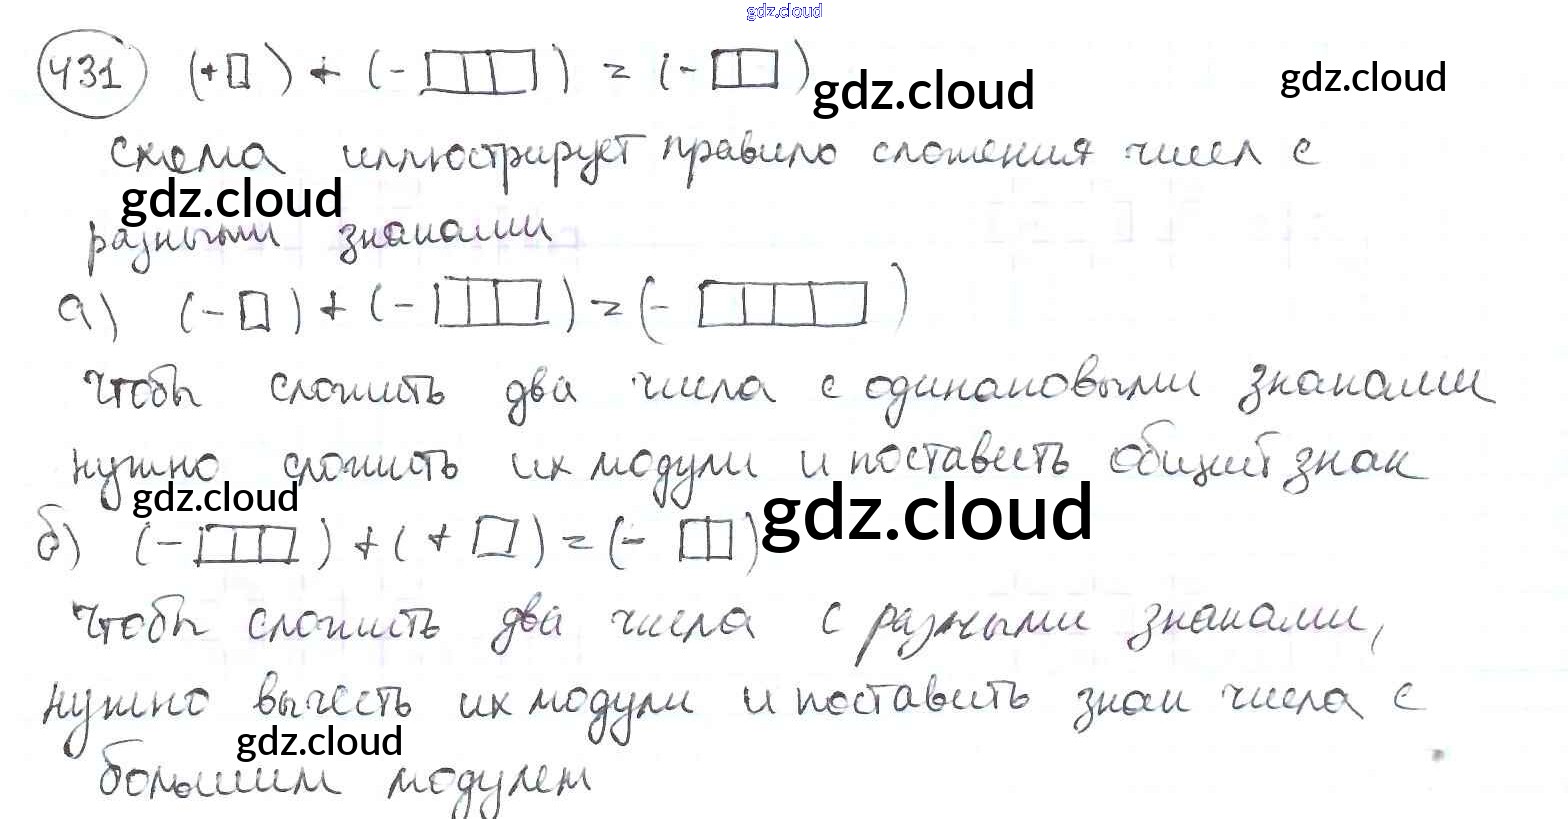 gdz.cloud
431 (+□) + (-□□□) = (-□□)
gdz.cloud
gdz.cloud
схема иллюстрирует правило сложения чисел с
gdz.cloud
разными знаками
а) (-□) + (-□□□) = (-□□□□)
чтобы сложить два числа с одинаковыми знаками
нужно сложить их модули и поставить общий знак
gdz.cloud
gdz.cloud
б) (-□□□) + (+□) = (-□□)
чтобы сложить два числа с разными знаками,
нужно вычесть их модули и поставить знак числа с
gdz.cloud
большим модулем